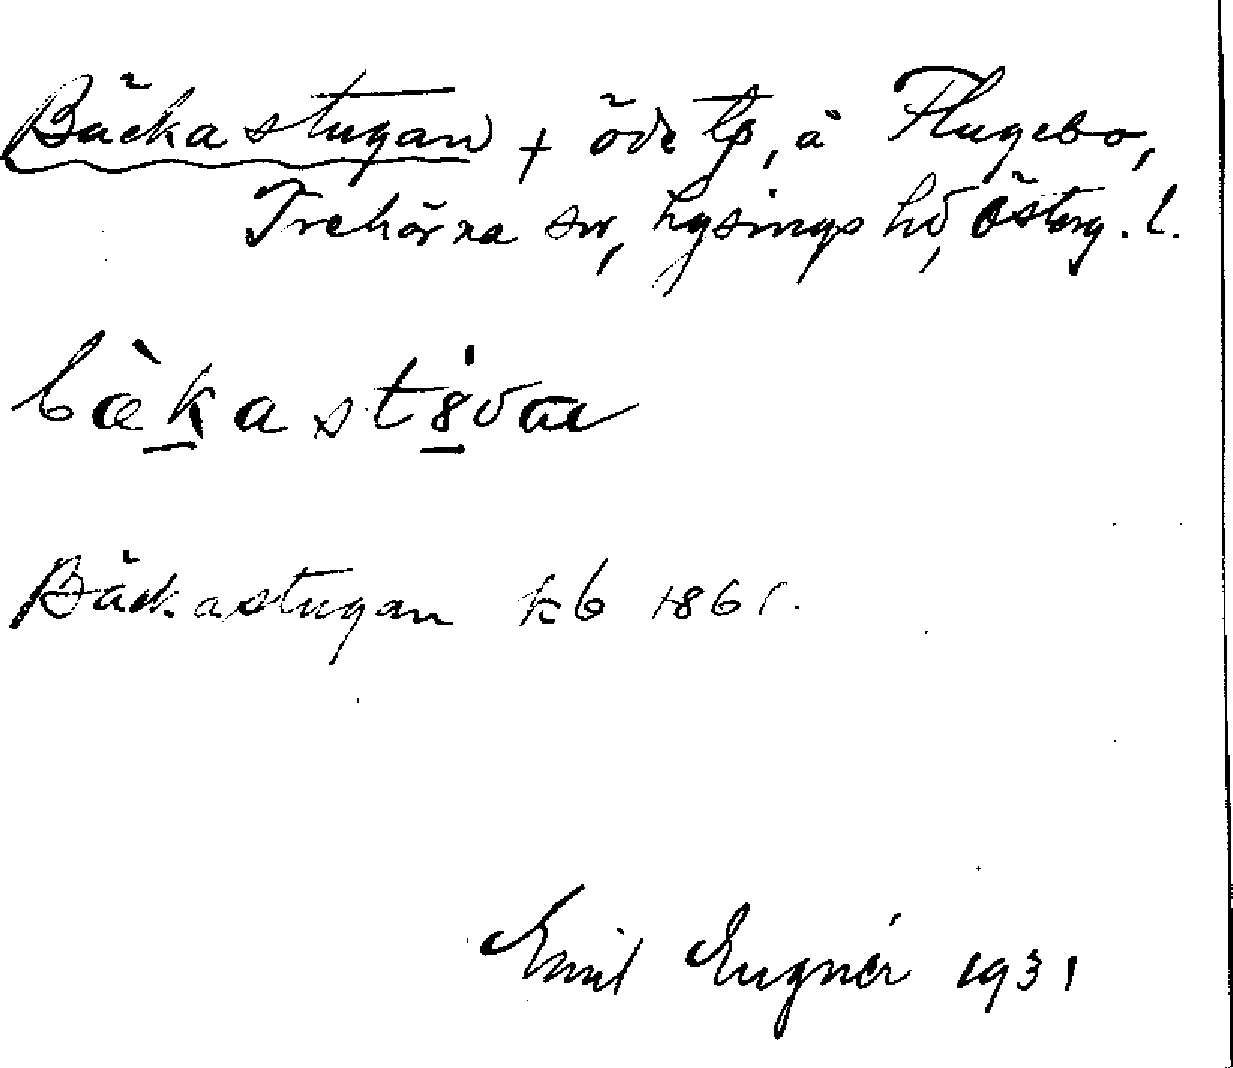 Bäckastugan + öde tp, å Flugebo,
Trehörna sn, Lysings hd, Österg. l.
bæ̀kast8́ơa
Bäckastugan kb 1861.
Emil Eugnér 1931